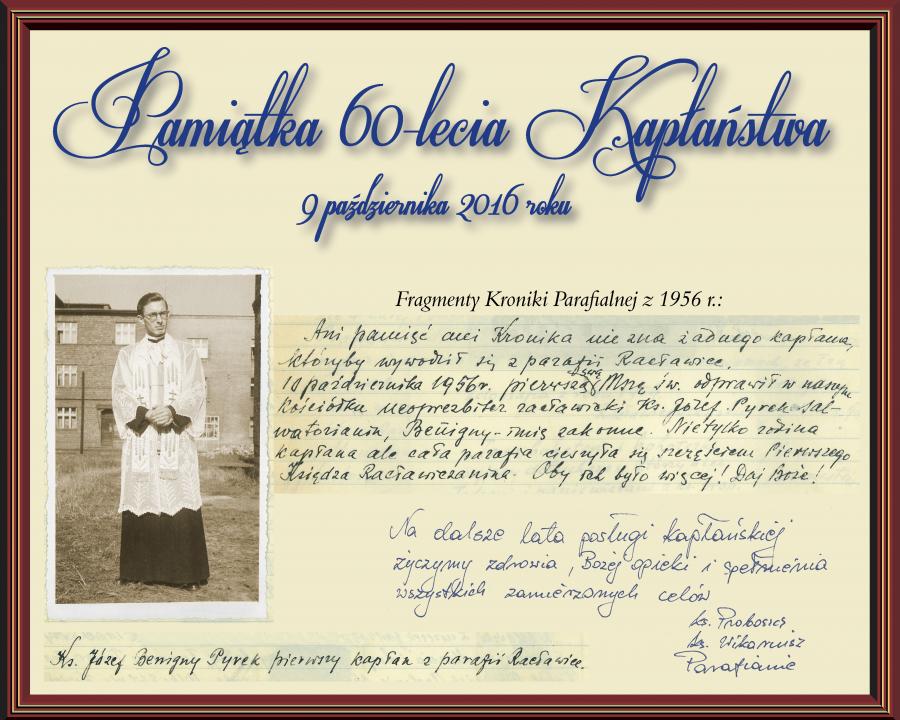 Pamiątka 60-lecia Kapłaństwa
9 października 2016 roku
Fragmenty Kroniki Parafialnej z 1956 r.:
Ani pamięć ani Kronika nie zna żadnego kapłana,
któryby wywodził się z parafii Racławice.
10 października 1956r. pierwszą swą Mszę św. odprawił w naszym
kościółku neoprezbiter racławicki Ks. Józef Pyrek sal-
watorianin, Benigny-imię zakonne. Nietylko rodzina
kapłana ale cała parafia cieszyła się szczęściem Pierwszego
Księdza Racławiczanina. Oby ich było więcej! Daj Boże!
Na dalsze lata posługi kapłańskiej
życzymy zdrowia, Bożej opieki i spełnienia
wszystkich zamierzonych celów
ks. Proboszcz
ks. Wikariusz
Parafianie
Ks. Józef Benigny Pyrek pierwszy kapłan z parafii Racławice.